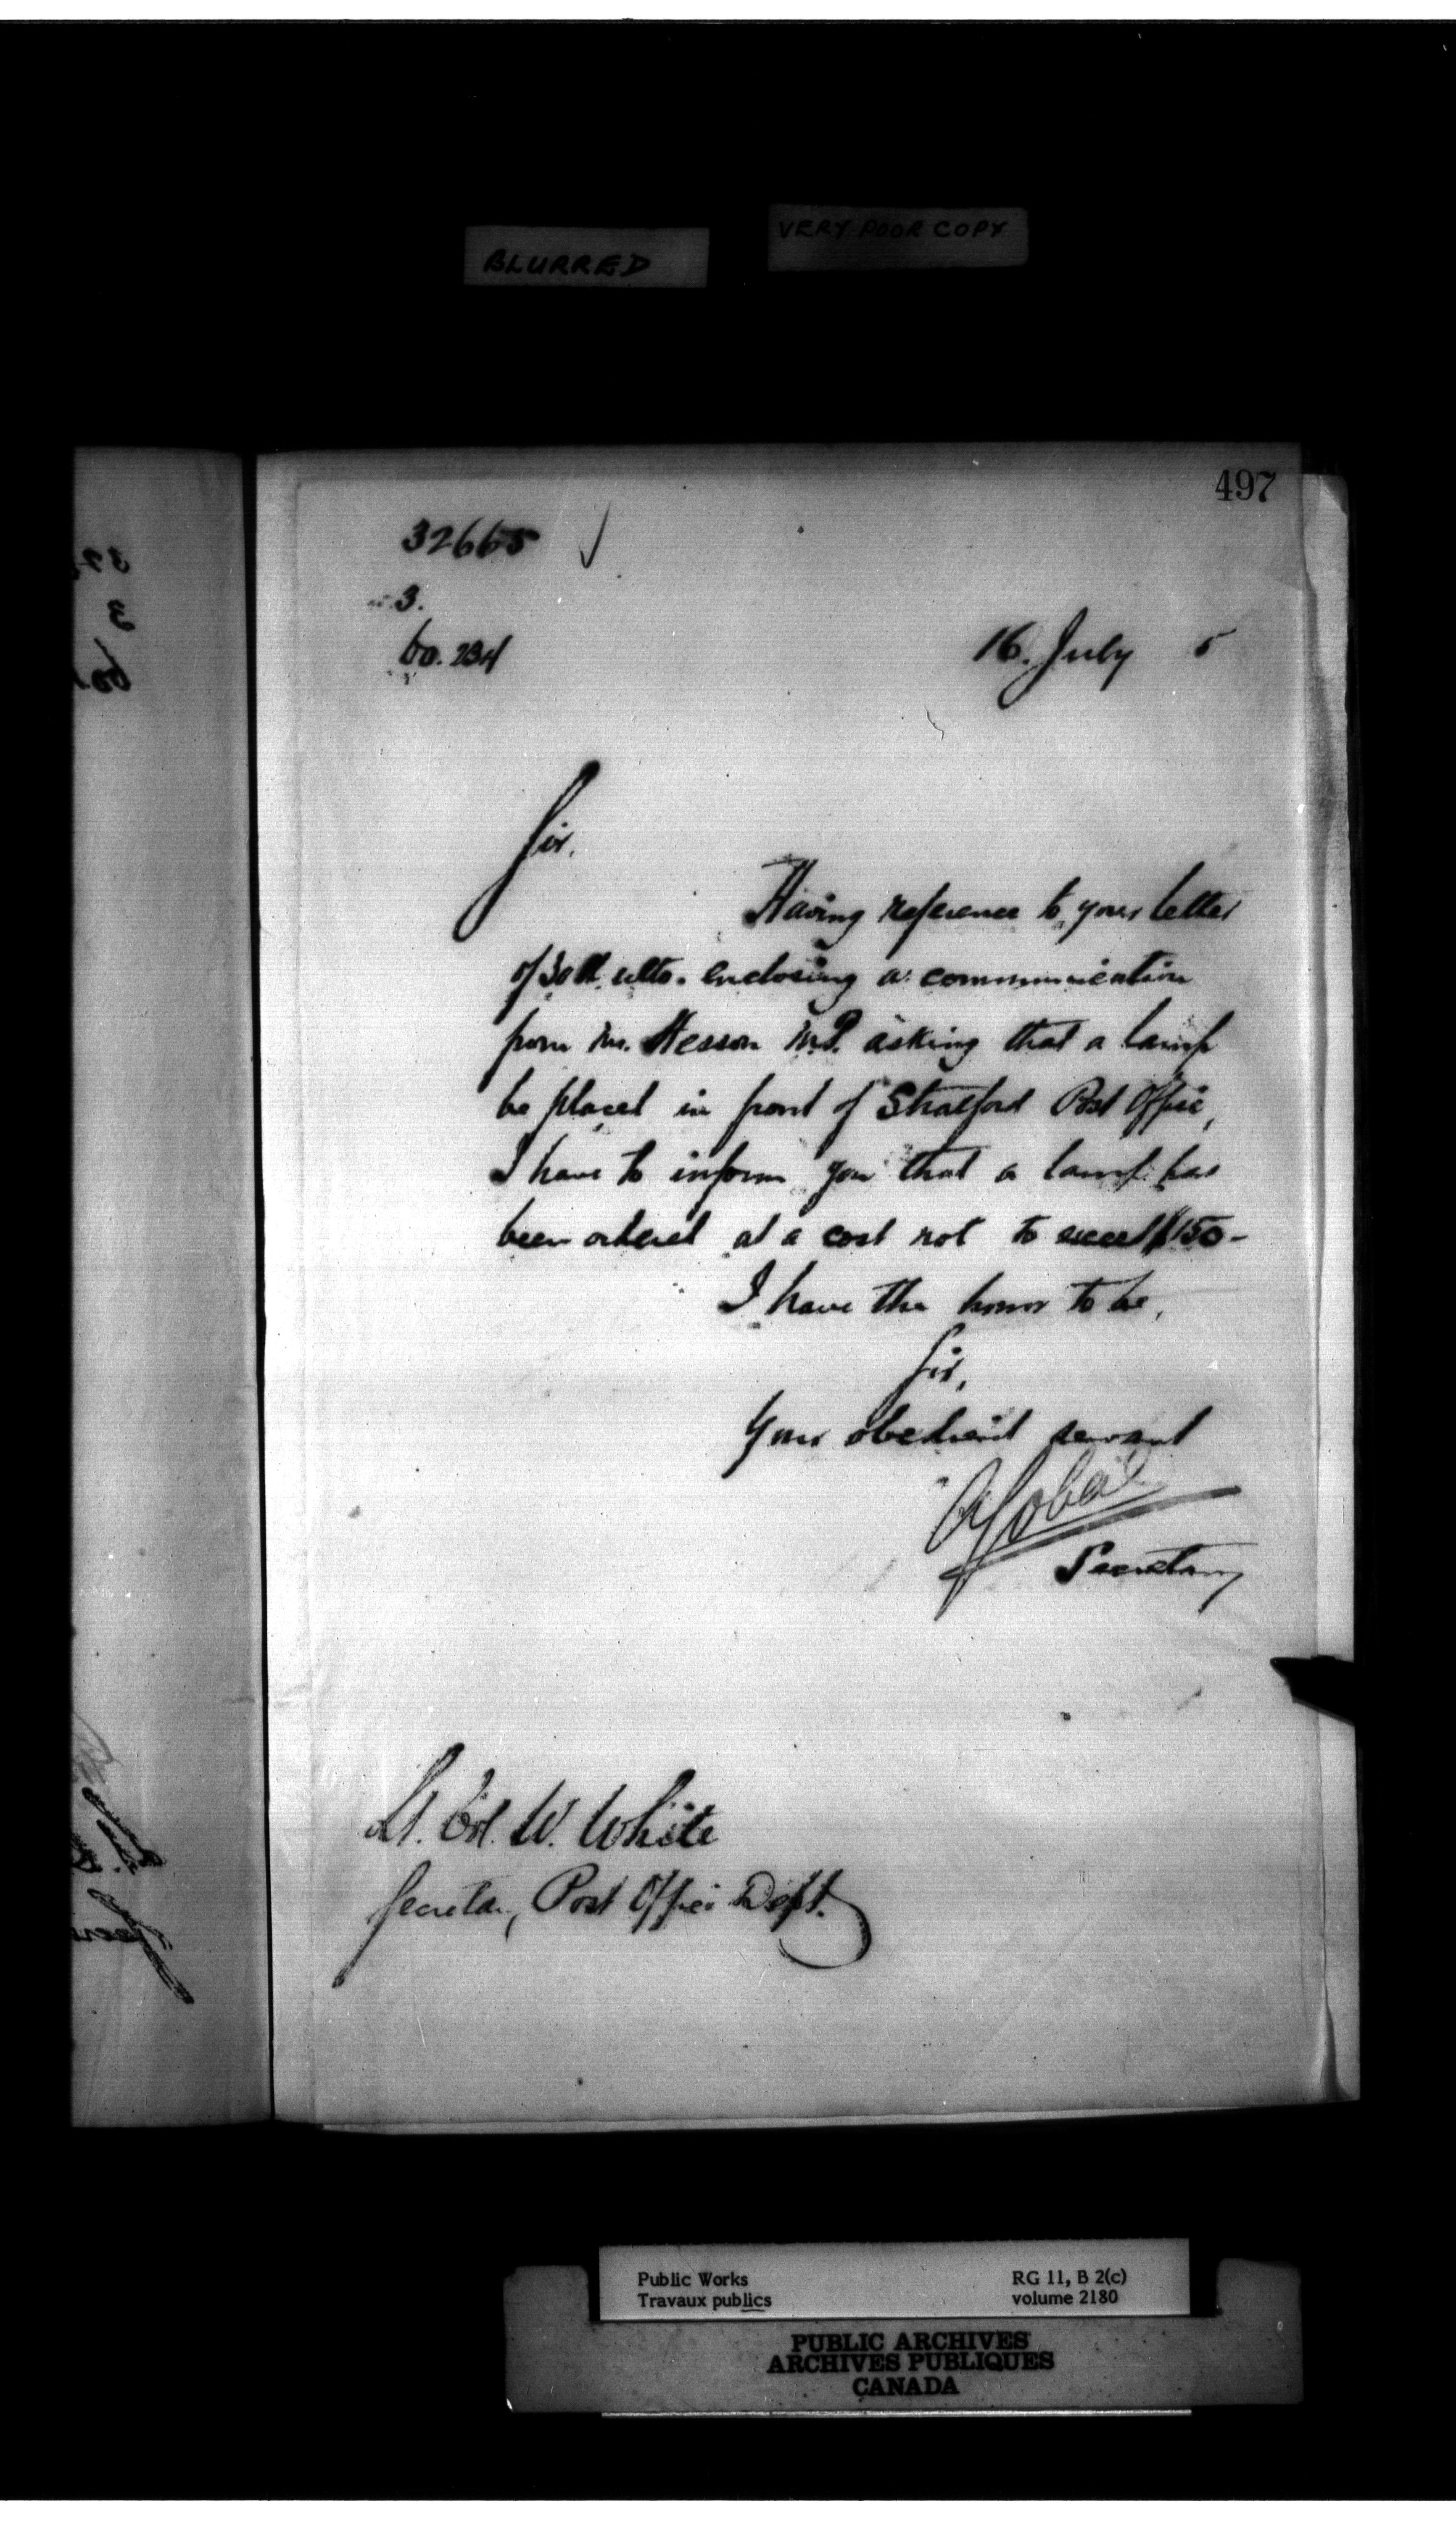 BLURRED
VERY POOR COPY
497
32665
3.
16. July 5
Sir,
Having reference to your letter
of 30th ulto. enclosing a communication
from Mr. Hesson M.P. asking that a lamp
be placed in front of Stratford Post Office,
I have to inform you that a lamp has
been ordered at a cost not to exceed $150-
I have the honor to be,
Sir,
Your obedient servant
A Gobeil
Secretary
Lt. Col. W. White
Secretary, Post Office Dept.
Public Works
Travaux publics
RG 11, B 2(c)
volume 2180
PUBLIC ARCHIVES
ARCHIVES PUBLIQUES
CANADA